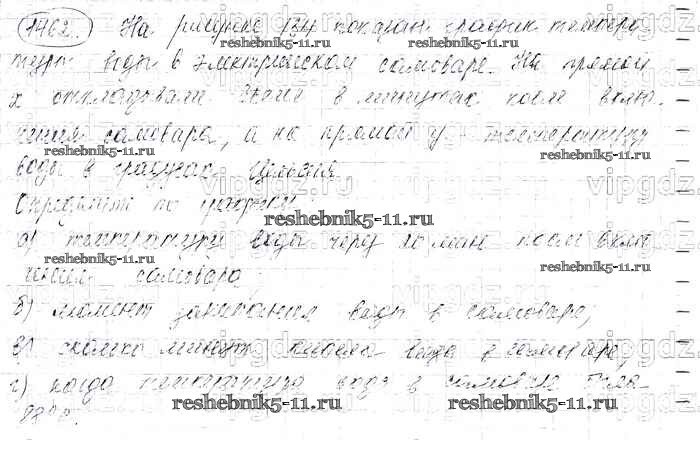 1462. На рисунке 154 показан график температуры
воды в электрическом самоваре. На прямой
x откладывали время в минутах после вклю-
чения самовара, а на прямой y температуру
воды в градусах Цельсия.
Определите по графику:
а) температуру воды через 10 мин после вклю
чения самовара
б) момент закипания воды в самоваре;
в) сколько минут кипела вода в самоваре,
г) когда температура воды в самоваре была
reshebnik5-11.ru
reshebnik5-11.ru
reshebnik5-11.ru
reshebnik5-11.ru
reshebnik5-11.ru
reshebnik5-11.ru
reshebnik5-11.ru
reshebnik5-11.ru
vipgdz.ru